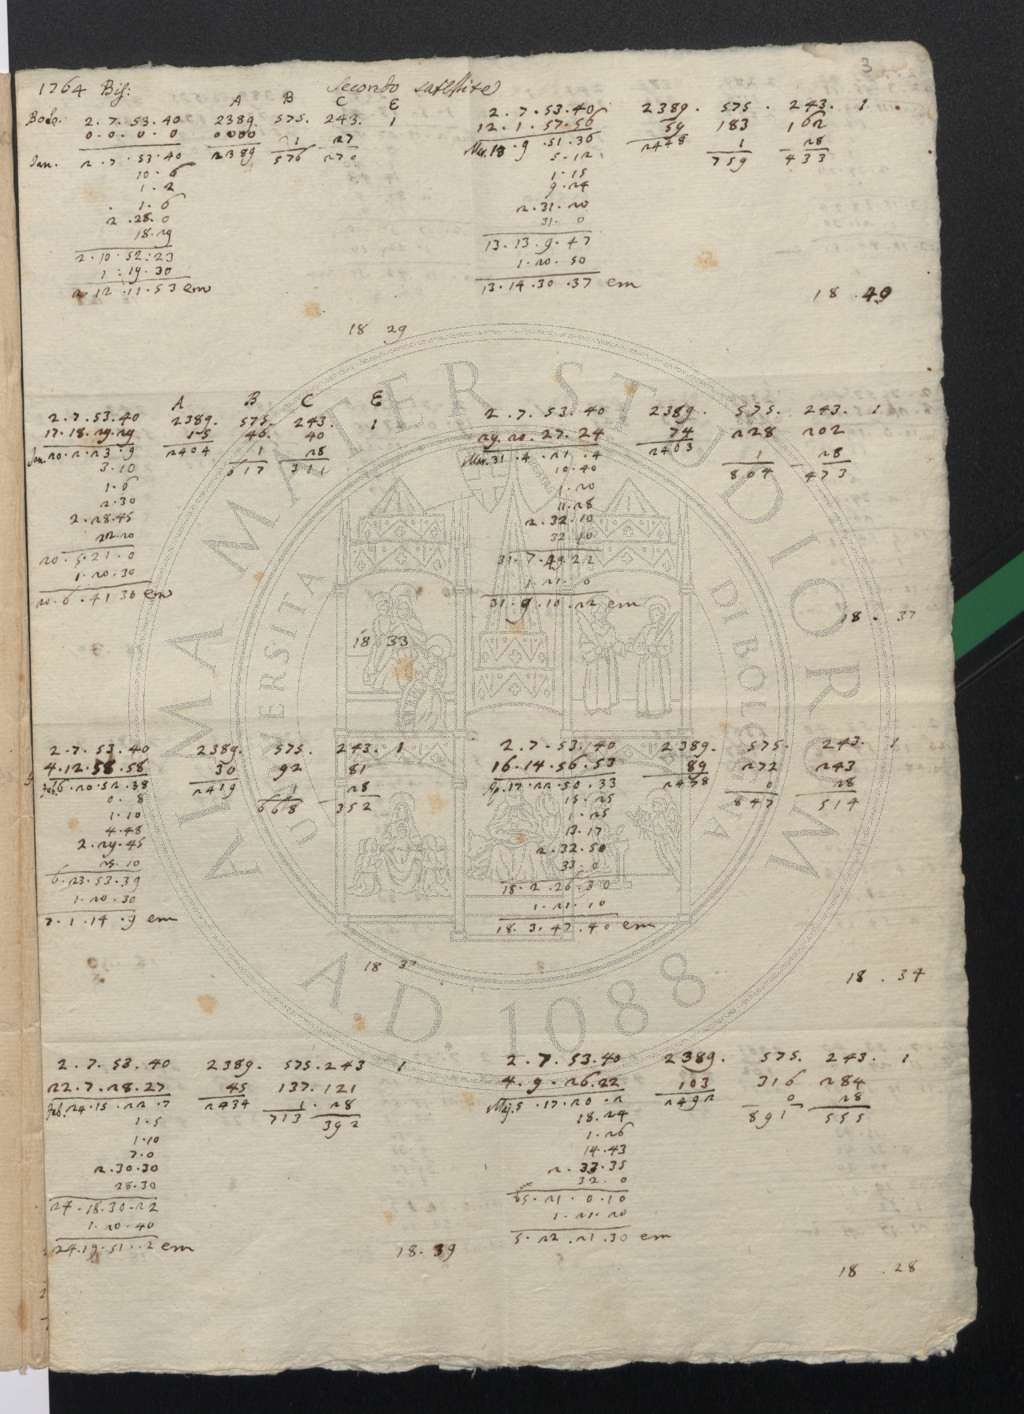 3
1764 Bis: Secondo satellite
A B C E
Bolo. 2.7.53.40 2389. 575. 243. 1
0.0.0.0 0000 1 27
Jan. 2.7.53.40 2389 576 270
10.6
1.2
1.6
2.28.0
18.29
2.10.52.23
1.19.30
2.12.11.53 em
18 29
2.7.53.40 2389. 575. 243. 1
12.1.57.56 59 183 162
Mar.18.9.51.36 2448 1 28
5.12 759 433
1.15
9.24
2.31.20
31.0
13.13.9.47
1.20.50
13.14.30.37 em
18.40
A B C E
2.7.53.40 2389. 575. 243. 1
17.18.29.29 15 46 40
Jan.20.2.23.9 2404 1 28
3.10 617 311
1.6
2.30
2.28.45
22.20
20.5.21.0
1.20.30
20.6.41.30 em
18 33
2.7.53.40 2389. 575. 243. 1
29.20.27.24 74 228 202
Mar.31.4.21.4 2463 1 28
10.40 804 473
1.20
11.28
2.32.10
32.40
31.7.49.22
1.21.0
31.9.10.22 em
18.37
2.7.53.40 2389. 575. 243. 1
4.12.58.58 30 92 81
Feb.6.20.52.38 2419 1 28
0.8 668 352
1.10
4.48
2.29.45
25.10
6.23.53.39
1.20.30
7.1.14.9 em
18 37
2.7.53.40 2389. 575. 243. 1
16.14.56.53 89 272 243
17.22.50.33 2478 0 28
15.25 847 514
1.25
13.17
2.32.50
33.0
18.2.26.30
1.21.10
18.3.47.40 em
18.34
2.7.53.40 2389. 575.243 1
22.7.28.27 45 137.121
Feb.24.15.22.7 2434 1.28
1.5 713 392
1.10
7.0
2.30.30
28.30
24.18.30.22
1.20.40
24.19.51.2 em
18.39
2.7.53.40 2389. 575. 243. 1
4.9.26.22 103 316 284
Mag.5.17.20.2 2492 0 28
18.24 891 555
1.26
14.43
2.33.35
32.0
5.21.0.10
1.21.20
5.22.21.30 em
18.28
ALMA MATER STUDIORUM
UNIVERSITÀ DI BOLOGNA
A.D. 1088